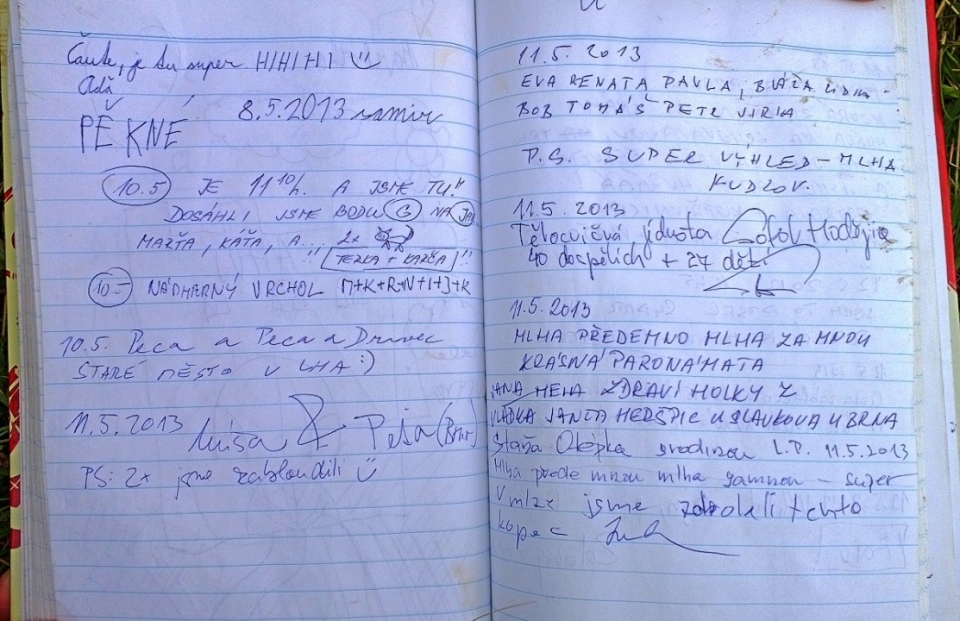 Čaute, je tu super HIHIHI
Adā
PĚKNÉ
8.5.2013
10.5 JE 11 10/h. A JSME TU!!
DOSÁHLI JSME BODU G NA
MARŤA, KÁŤA, A... 2x
TERKA + KARČA
10.5 NÁDHERNÝ VRCHOL M+K+R+N+I+J+K
10.5. Peca a Peca a
STARÉ MĚSTO U UHA :)
11.5.2013 Míša & Péťa (Brno)
PS: 2x jsme zabloudili
11.5.2013
EVA RENATA PAVLA, BLÁŽA LIDIA
BOB TOMÁŠ PETR JIRKA
P.S. SUPER VÝHLED – MLHA
KUDLOV.
11.5.2013
Tělocvičná jednota Sokol
40 dospělých + 27 dětí
11.5.2013
MLHA PŘEDEMNOU MLHA ZA MNOU
KRÁSNÁ PARONAMATA
JANA HELA ZDRAVÍ HOLKY Z
HERŠPIC U SLAVKOVA U BRNA
Staňa s rodinou L.P. 11.5.2013
Mlha přede mnou mlha zamnou – super
V mlze jsme zdolali tento
kopec